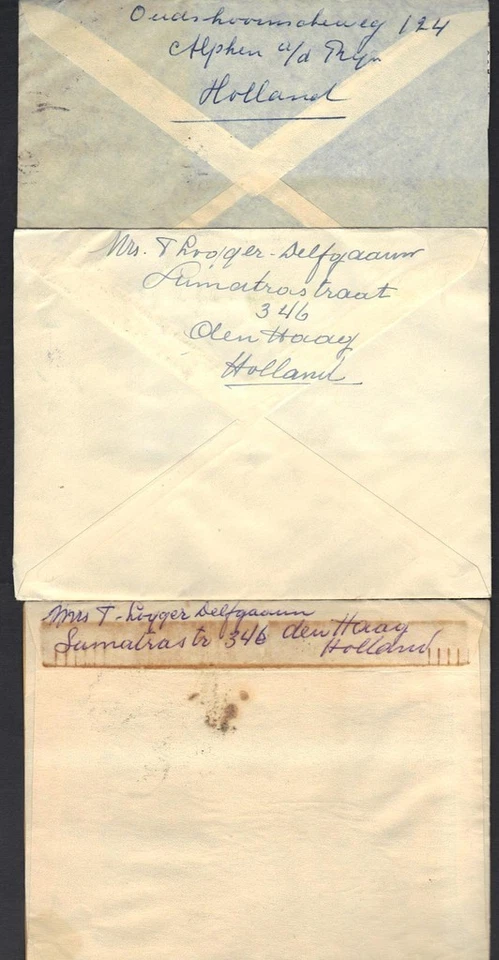 Oudshoornscheweg 124
Alphen a/d Ryn
Holland
Mrs. T Looyer-Delfgaauw
Sumatrastraat
346
Den Haag
Holland
Mrs T-Looyer Delfgaauw
Sumatrastr 346 den Haag
Holland